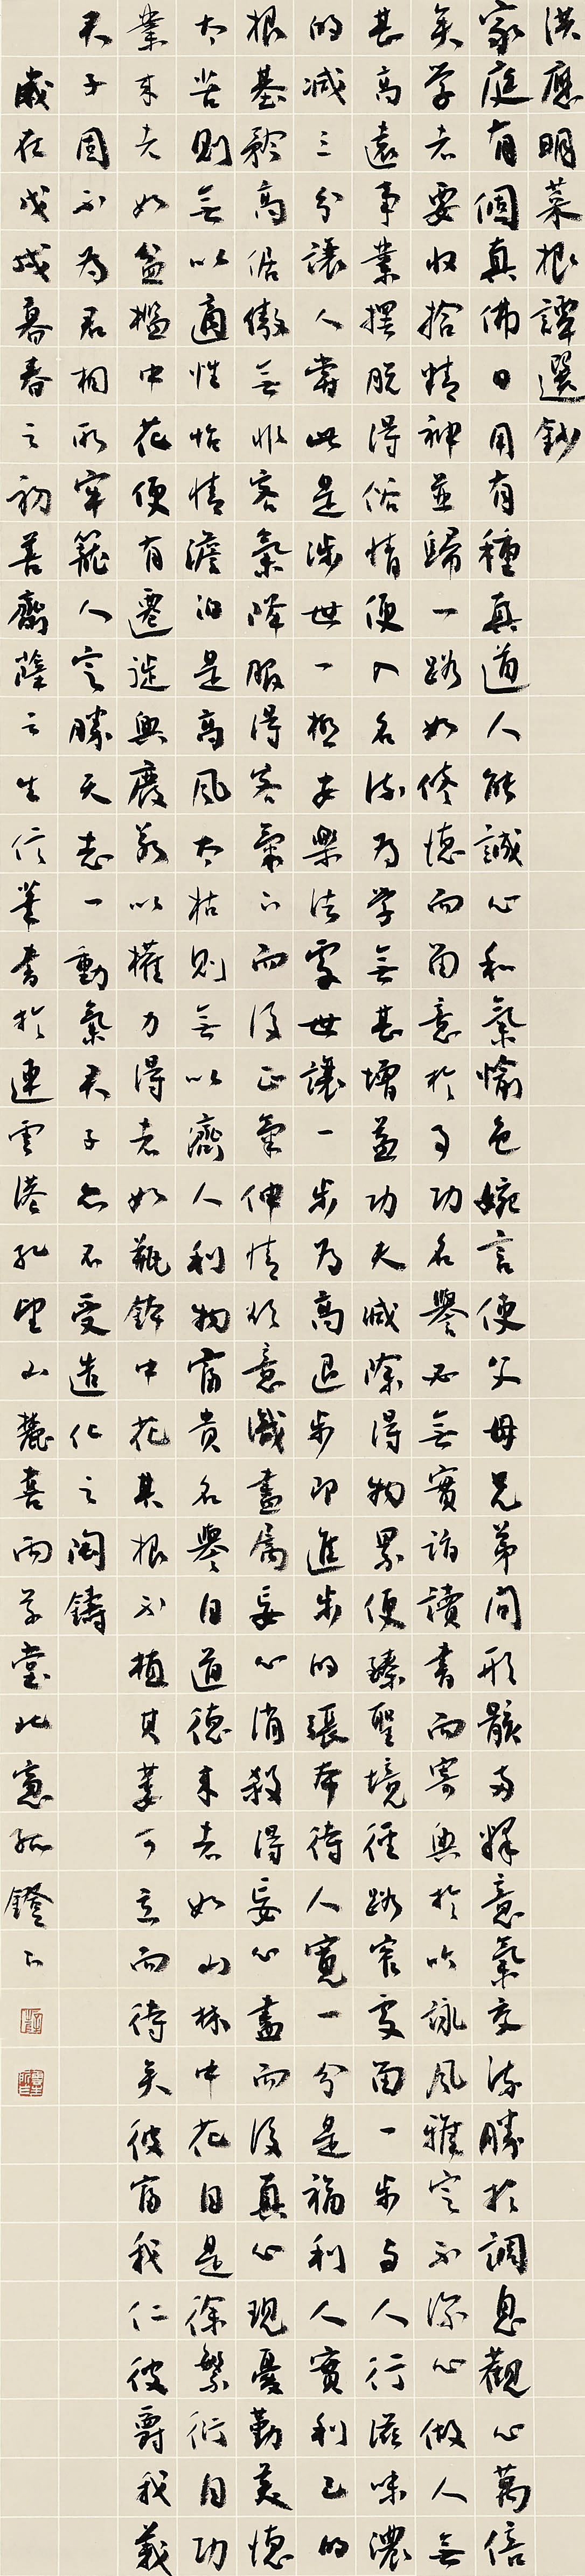 洪應明菜根譚選鈔
家庭有個真佛日用有種真道人能誠心和氣愉色婉言使父母兄弟間形骸兩釋意氣交流勝於調息觀心萬倍
矣学者要收拾精神並歸一路如修德而留意於事功名譽必無實詣讀書而寄興於吟詠風雅定不深心做人無
甚高遠事業擺脫得俗情便入名流為学無甚增益功夫減除得物累便臻聖境徑路窄處留一步与人行滋味濃
的減三分讓人嘗此是涉世一極安樂法處世讓一步為高退步即進步的張本待人寬一分是福利人實利己的
根基矜高倨傲無非客氣降服得客氣下而後正氣伸情欲意識盡屬妄心消殺得妄心盡而後真心現憂勤美德
太苦則無以適性怡情澹泊是高風太枯則無以濟人利物富貴名譽自道德來者如山林中花自是徐繁衍自功
業來者如盆檻中花便有遷徙興廢若以權力得者如瓶鉢中花其根不植其萎可立而待矣彼富我仁彼爵我義
君子固不為君相所牢籠人定勝天志一動氣君子亦不受造化之陶鑄
歲在戊戌暮春之初善齋薩云生信筆書於連雲港孔望山麓喜雨草堂北窗孤鐙下